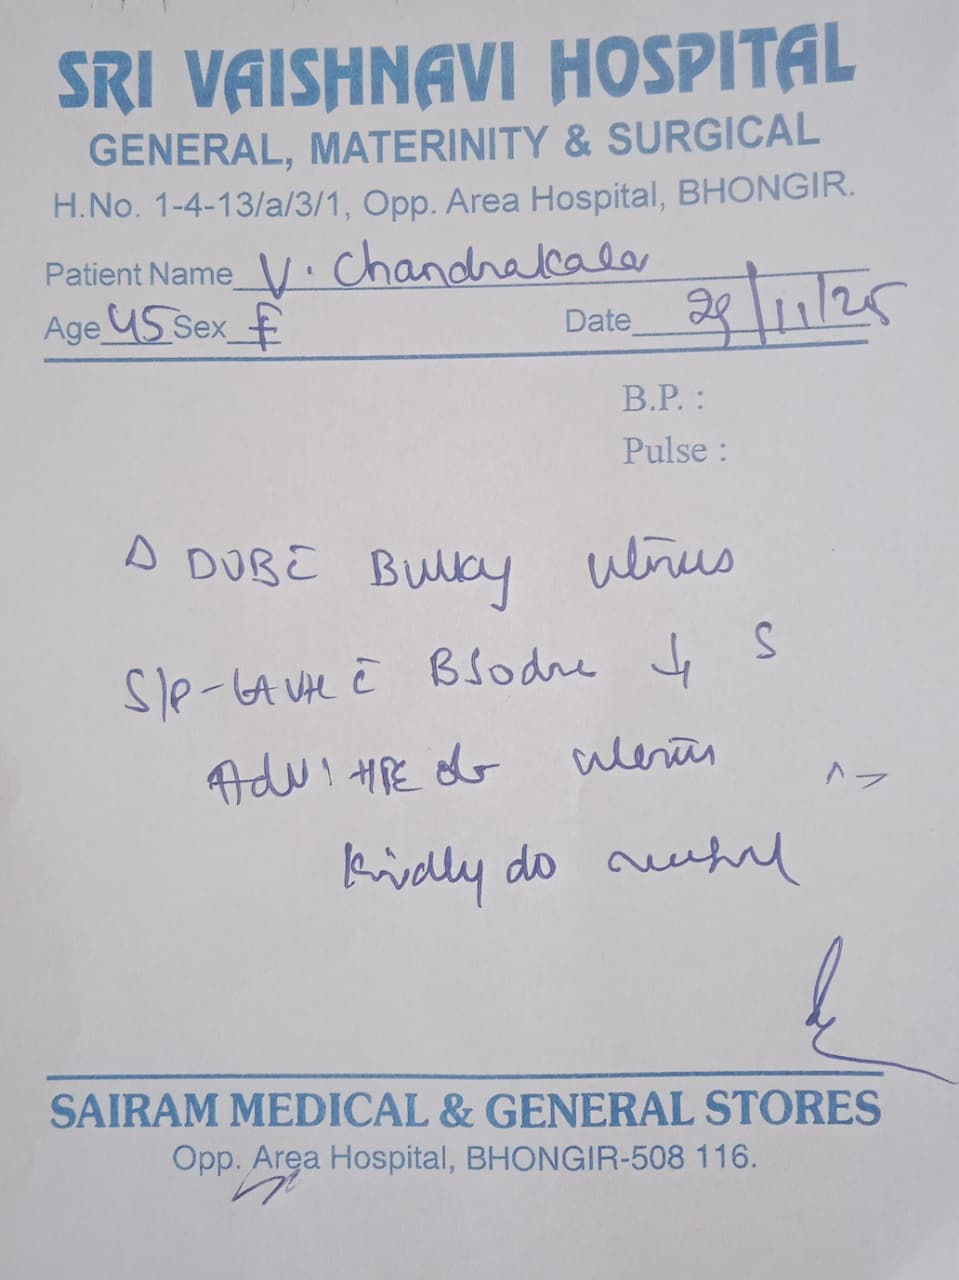 SRI VAISHNAVI HOSPITAL
GENERAL, MATERINITY & SURGICAL
H.No. 1-4-13/a/3/1, Opp. Area Hospital, BHONGIR.
Patient Name V. Chandrakala
Age 45 Sex F Date 29/11/25
B.P. :
Pulse :
Δ DUB c̄ Bulky uterus
S/P - LAVH c̄ ↓ S
Adv: HPE of uterus
Kindly do
SAIRAM MEDICAL & GENERAL STORES
Opp. Area Hospital, BHONGIR-508 116.